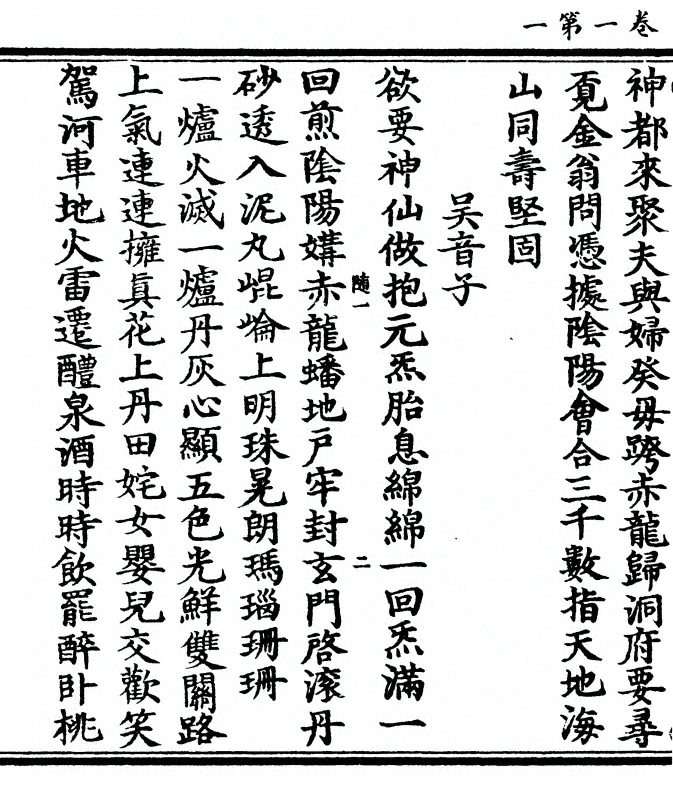 卷一第一
神都來聚夫與婦癸毋跨赤龍歸洞府要尋
覔金翁問憑據陰陽會合三千數指天地海
山同壽堅固
吴音子
欲要神仙做抱元炁胎息綿綿一回炁滿一
随一
二
回煎陰陽媾赤龍蟠地戸牢封玄門啓滚丹
砂透入泥丸崐崘上明珠晃朗瑪瑙珊珊
一爐火滅一爐丹灰心顯五色光鮮雙關路
上氣連連擁眞花上丹田姹女嬰兒交歡笑
駕河車地火雷遷醴泉酒時時飲罷醉卧桃